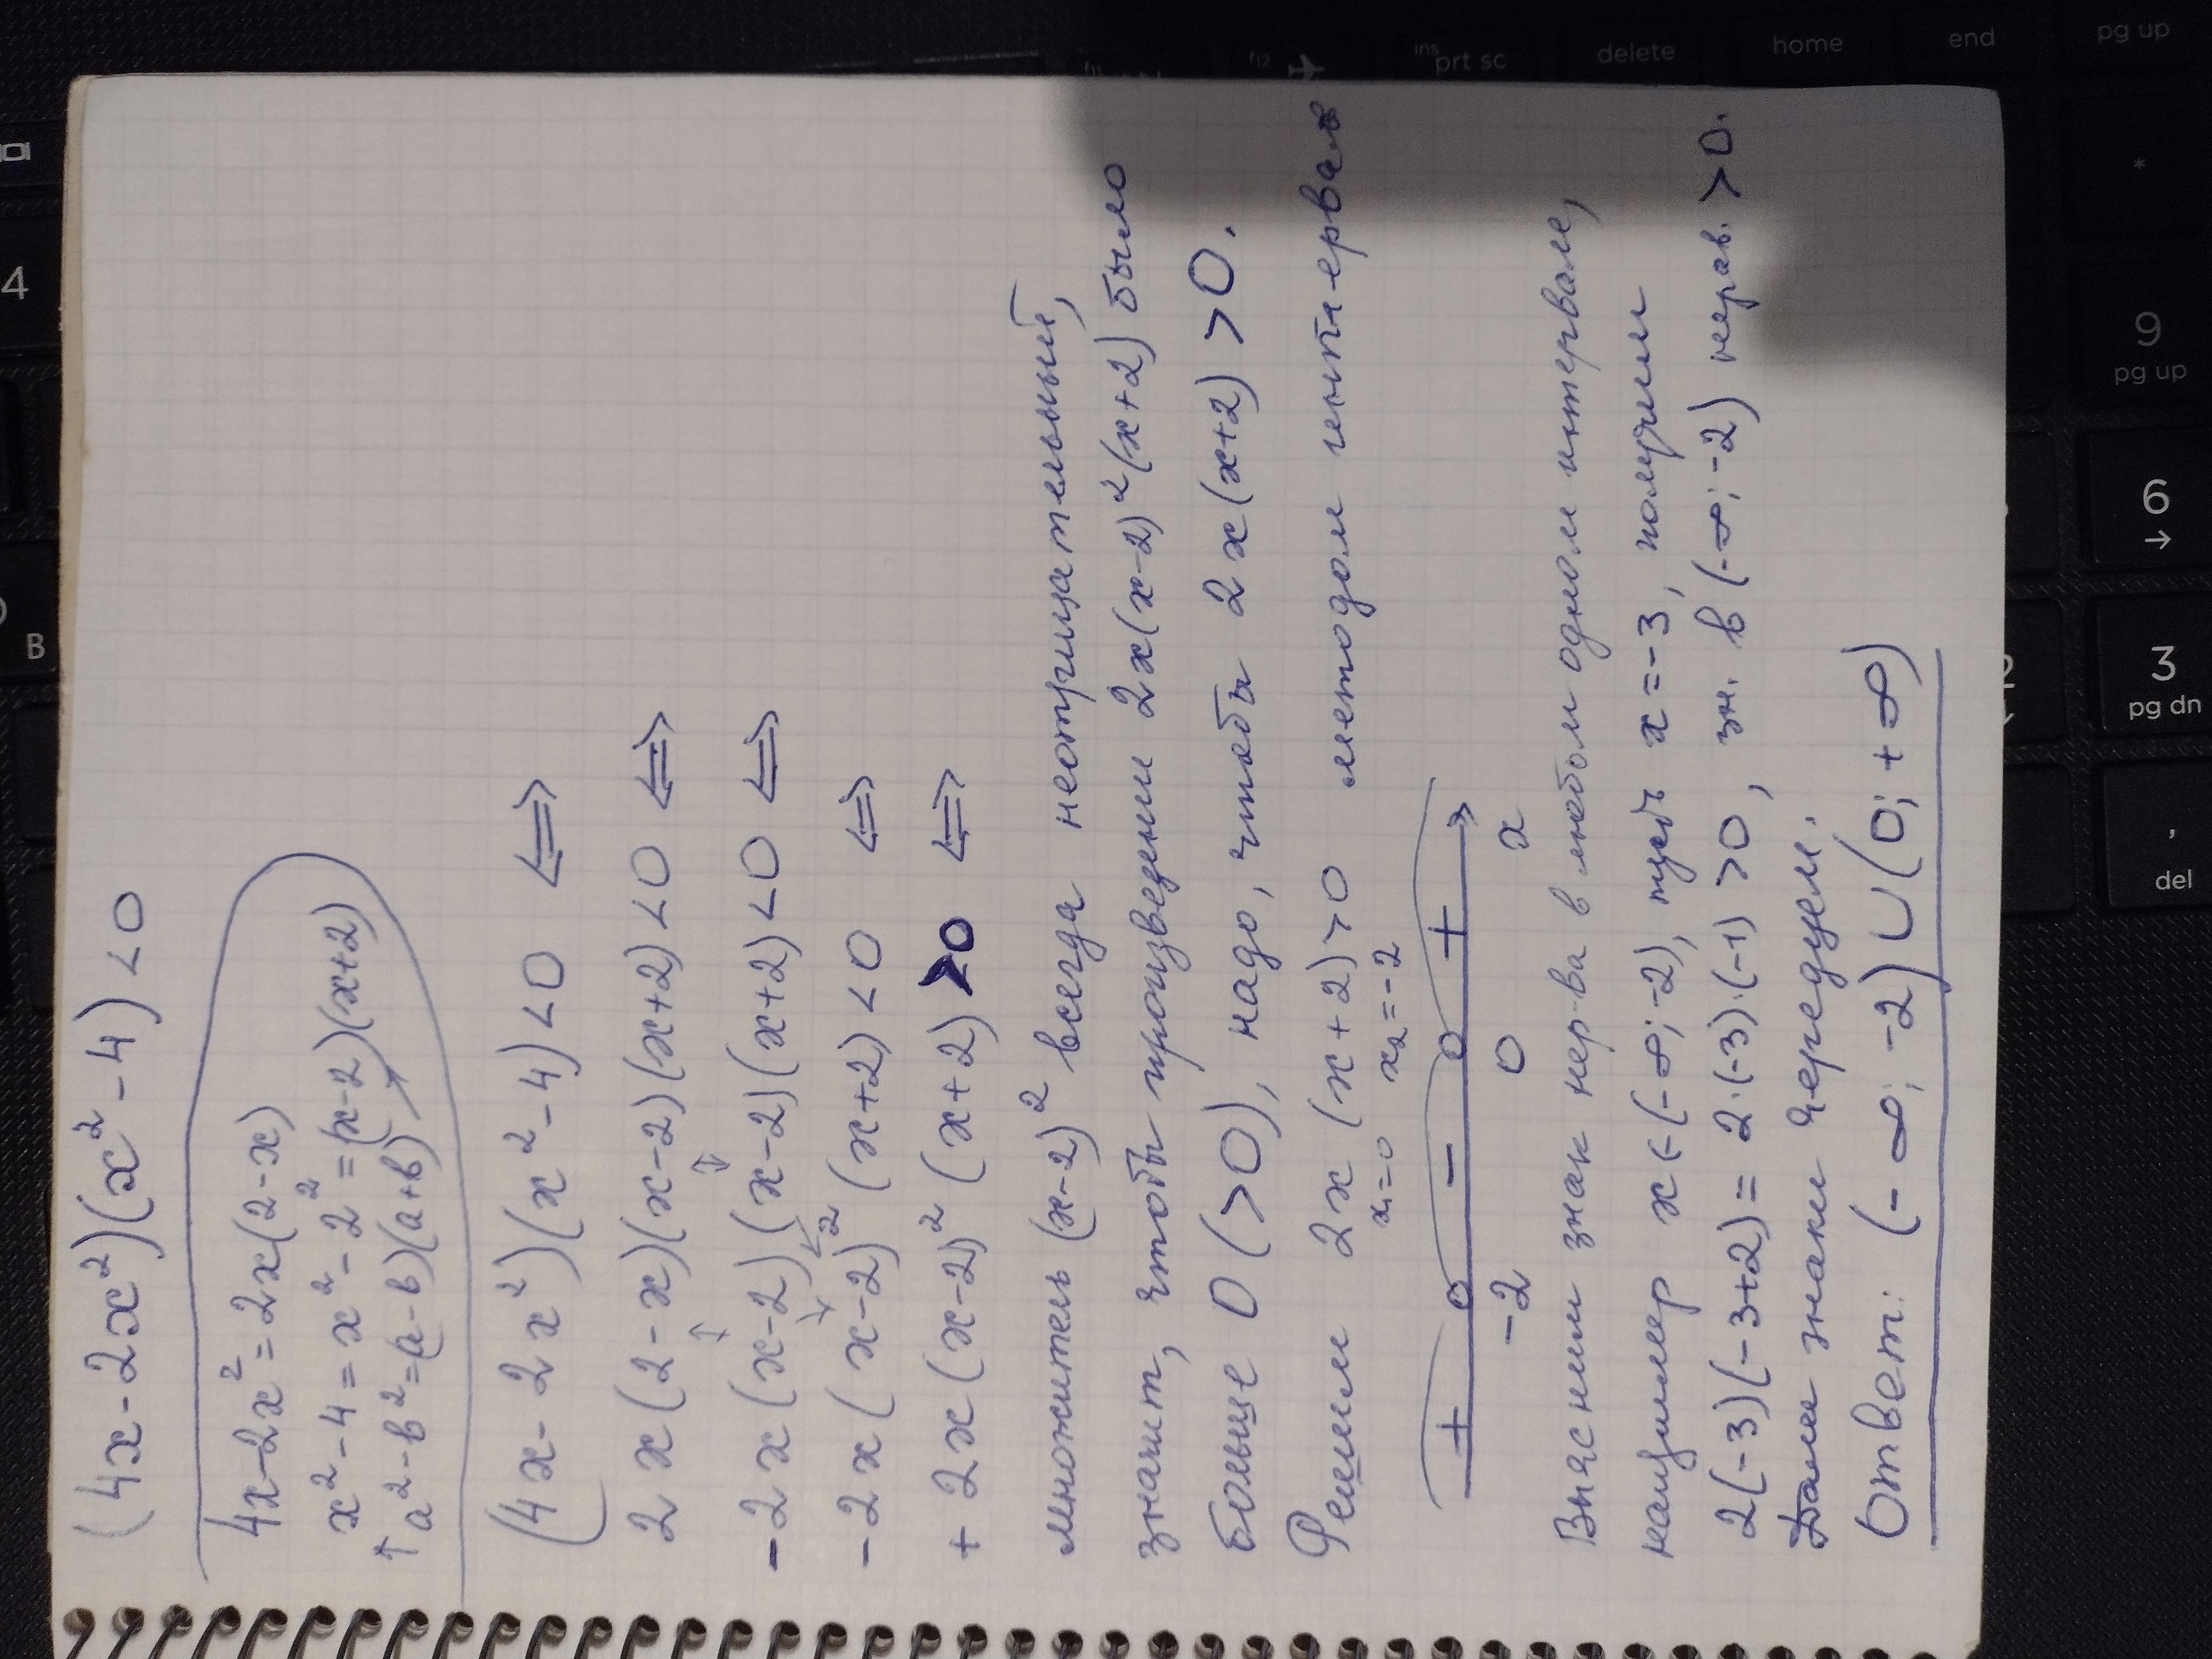 (4x-2x²)(x²-4)<0
4x-2x²=2x(2-x)
x²-4=x²-2²=(x-2)(x+2)
↑ a²-b²=(a-b)(a+b) ↗
(4x-2x²)(x²-4)<0 <=>
2x(2-x)(x-2)(x+2)<0 <=>
-2x(x-2)(x-2)(x+2)<0 <=>
-2x(x-2)²(x+2)<0 <=>
+2x(x-2)²(x+2)>0 <=>
множитель (x-2)² всегда неотрицательный,
значит, чтобы произведени 2x(x-2)²(x+2) было
больше 0 (>0), надо, чтобы 2x(x+2)>0.
Решим 2x(x+2)>0 методом интервалв
x₁=0 x₂=-2
+ - +
-2 0 x
Выясним знак нер-ва в любом одном интервале,
например x∈(-∞;-2), пусть x=-3, получим
2(-3)(-3+2)=2·(-3)·(-1)>0, зн. в (-∞;-2) нерав. >0.
Далее знаки чередуем.
Ответ: (-∞;-2)∪(0;+∞)
4
B
f11
f12
ins
prt sc
delete
home
end
pg up
*
9
pg up
6
→
3
pg dn
,
del